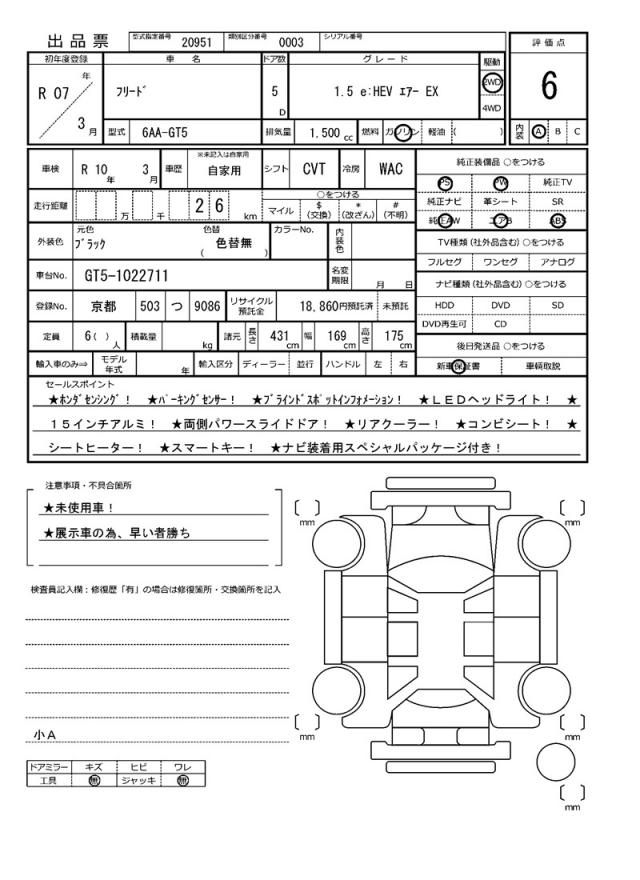 出品票 型式指定番号 20951 類別区分番号 0003 シリアル番号
評価点
初年度登録 車名 ドア数 グレード 駆動
R 07 年 3 月 フリード 5 D 1.5 e:HEV エアー EX 2WD 4WD
6
型式 6AA-GT5 排気量 1.500 cc 燃料 ガソリン 軽油 ( )
内装 A B C
車検 R 10 年 3 月 車歴 ※未記入は自家用 自家用 シフト CVT 冷房 WAC
走行距離 万 千 2 6 km ○をつける マイル $ (交換) * (改ざん) # (不明)
外装色 元色 ブラック 色替 色替無 ( ) カラーNo. 内装色
車台No. GT5-1022711 名変期限 月 日
登録No. 京都 503 つ 9086 リサイクル預託金 18,860円預託済 未預託
定員 6( ) 人 積載量 kg 諸元 長さ 431 cm 幅 169 cm 高さ 175 cm
輸入車のみ⇒ モデル年式 年 輸入区分 ディーラー 並行 ハンドル 左 右
純正装備品 ○をつける
PS PW 純正TV
純正ナビ 革シート SR
純正AW エアB ABS
TV種類 (社外品含む) ○をつける
フルセグ ワンセグ アナログ
ナビ種類 (社外品含む) ○をつける
HDD DVD SD
DVD再生可 CD
後日発送品 ○をつける
新車保証書 車輌取説
セールスポイント
★ホンダセンシング！ ★パーキングセンサー！ ★ブラインドスポットインフォメーション！ ★ＬＥＤヘッドライト！ ★
１５インチアルミ！ ★両側パワースライドドア！ ★リアクーラー！ ★コンビシート！ ★
シートヒーター！ ★スマートキー！ ★ナビ装着用スペシャルパッケージ付き！
注意事項・不具合箇所
★未使用車！
★展示車の為、早い者勝ち
検査員記入欄：修復歴「有」の場合は修復箇所・交換箇所を記入
小Ａ
ドアミラー キズ ヒビ ワレ
工具 無 ジャッキ 無
mm
mm
mm
mm
mm